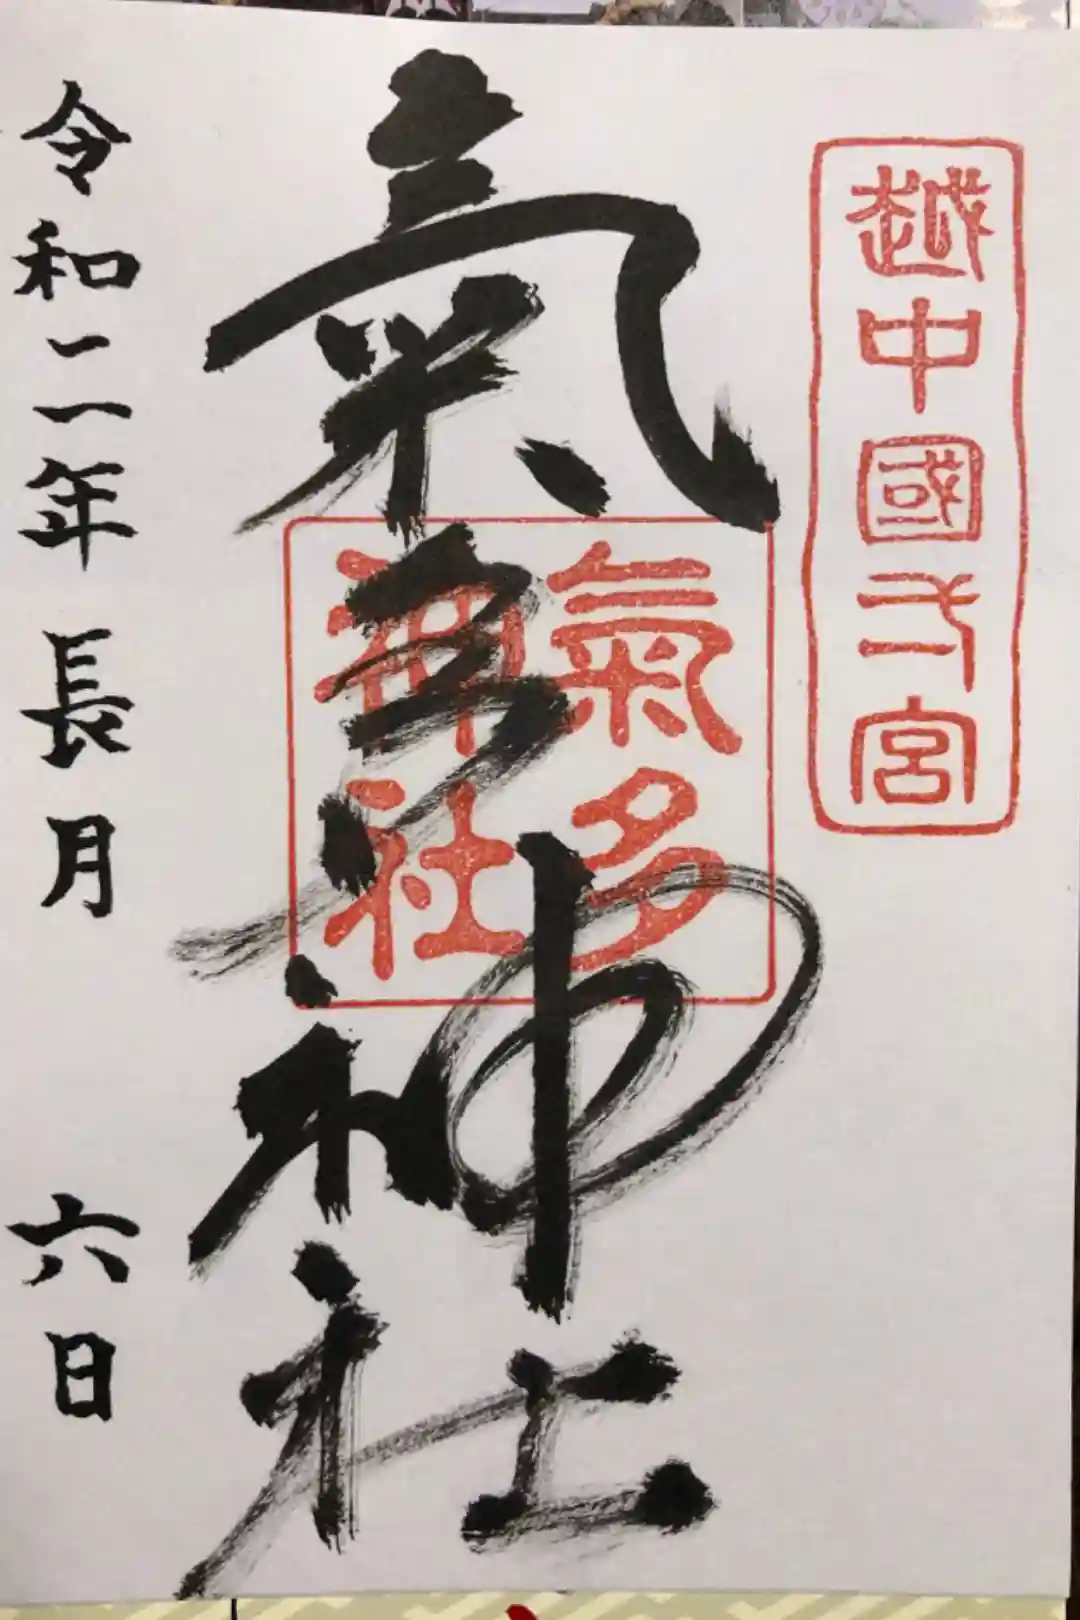 越中國弌宮
氣多神社
氣多
神社
令和二年長月六日